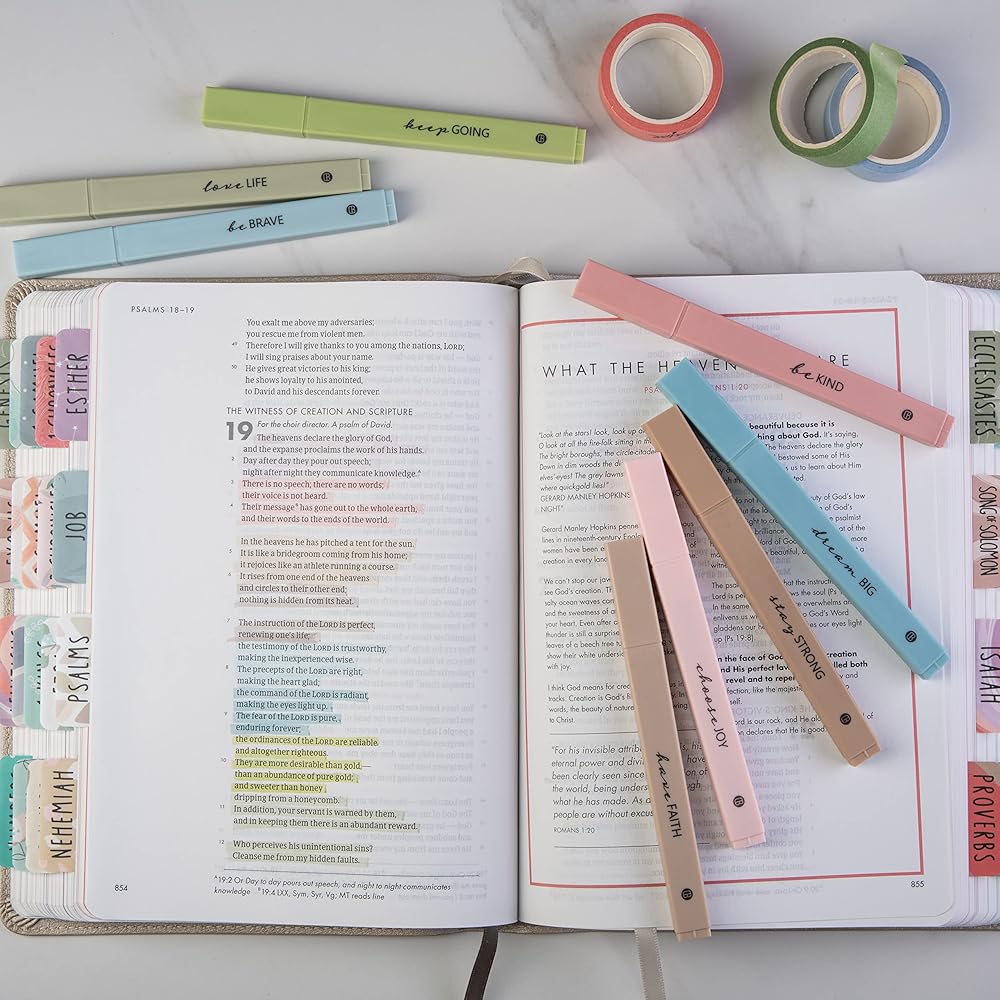 keep GOING
love LIFE
be BRAVE
PSALMS 18–19
You exalt me above my adversaries;
you rescue me from violent men.
49 Therefore I will give thanks to you among the nations, LORD;
I will sing praises about your name.
50 He gives great victories to his king;
he shows loyalty to his anointed,
to David and his descendants forever.
THE WITNESS OF CREATION AND SCRIPTURE
For the choir director. A psalm of David.
19 The heavens declare the glory of God,
and the expanse proclaims the work of his hands.
2 Day after day they pour out speech;
night after night they communicate knowledge.A
3 There is no speech; there are no words;
their voice is not heard.
4 Their messageB has gone out to the whole earth,
and their words to the ends of the world.
In the heavens he has pitched a tent for the sun.
5 It is like a bridegroom coming from his home;
it rejoices like an athlete running a course.
6 It rises from one end of the heavens
and circles to their other end;
nothing is hidden from its heat.
7 The instruction of the LORD is perfect,
renewing one's life;
the testimony of the LORD is trustworthy,
making the inexperienced wise.
8 The precepts of the LORD are right,
making the heart glad;
the command of the LORD is radiant,
making the eyes light up.
9 The fear of the LORD is pure,
enduring forever;
the ordinances of the LORD are reliable
and altogether righteous.
10 They are more desirable than gold —
than an abundance of pure gold;
and sweeter than honey
dripping from a honeycomb.
11 In addition, your servant is warned by them,
and in keeping them there is an abundant reward.
12 Who perceives his unintentional sins?
Cleanse me from my hidden faults.
A 19:2 Or Day to day pours out speech, and night to night communicates
knowledge B 19:4 LXX, Sym, Syr, Vg; MT reads line
854
ESTHER
JOB
PSALMS
NEHEMIAH
WHAT THE HEAVEN ARE
1:20
"Look at the stars! look, look up
O look at all the fire-folk sitting in
The bright boroughs, the circle-citadel
Down in dim woods the
elves'-eyes! The grey lawns
where quickgold lies!"
GERARD MANLEY HOPKINS
NIGHT"
Gerard Manley Hopkins penned
lines in nineteenth-century
women have been
creation in every
We can't stop our
God's creation. The
salty ocean waves
and the sweetness of
your heart. Even after
thunder is still a
leaves of a beech tree
show their white
with joy.
I think God means for
tracks. Creation is God's
words, the beauty of nature
to Christ.
"For his invisible attributes
eternal power and divine
been clearly seen since
the world, being understood
what he has made. As
people are without excuse
ROMANS 1:20
beautiful because it is
thing about God. It's saying,
The heavens declare the glory
bestowed some of His
us to learn about Him
beauty of God's law
psalmist
that the instruction
Lord is perfect (Ps
In the same
overwhelms and
enlivens us
to God's Word
gladdens our
our eyes light
up (Ps 19:8).
in the face of God's creation
and His perfect law,
called both
revel and to
like the majestic
is our rock, and He
declares that He is good.
855
be KIND
dream BIG
stay STRONG
choose JOY
have FAITH
ECCLESIASTES
SONG OF SOLOMON
ISAIAH
PROVERBS